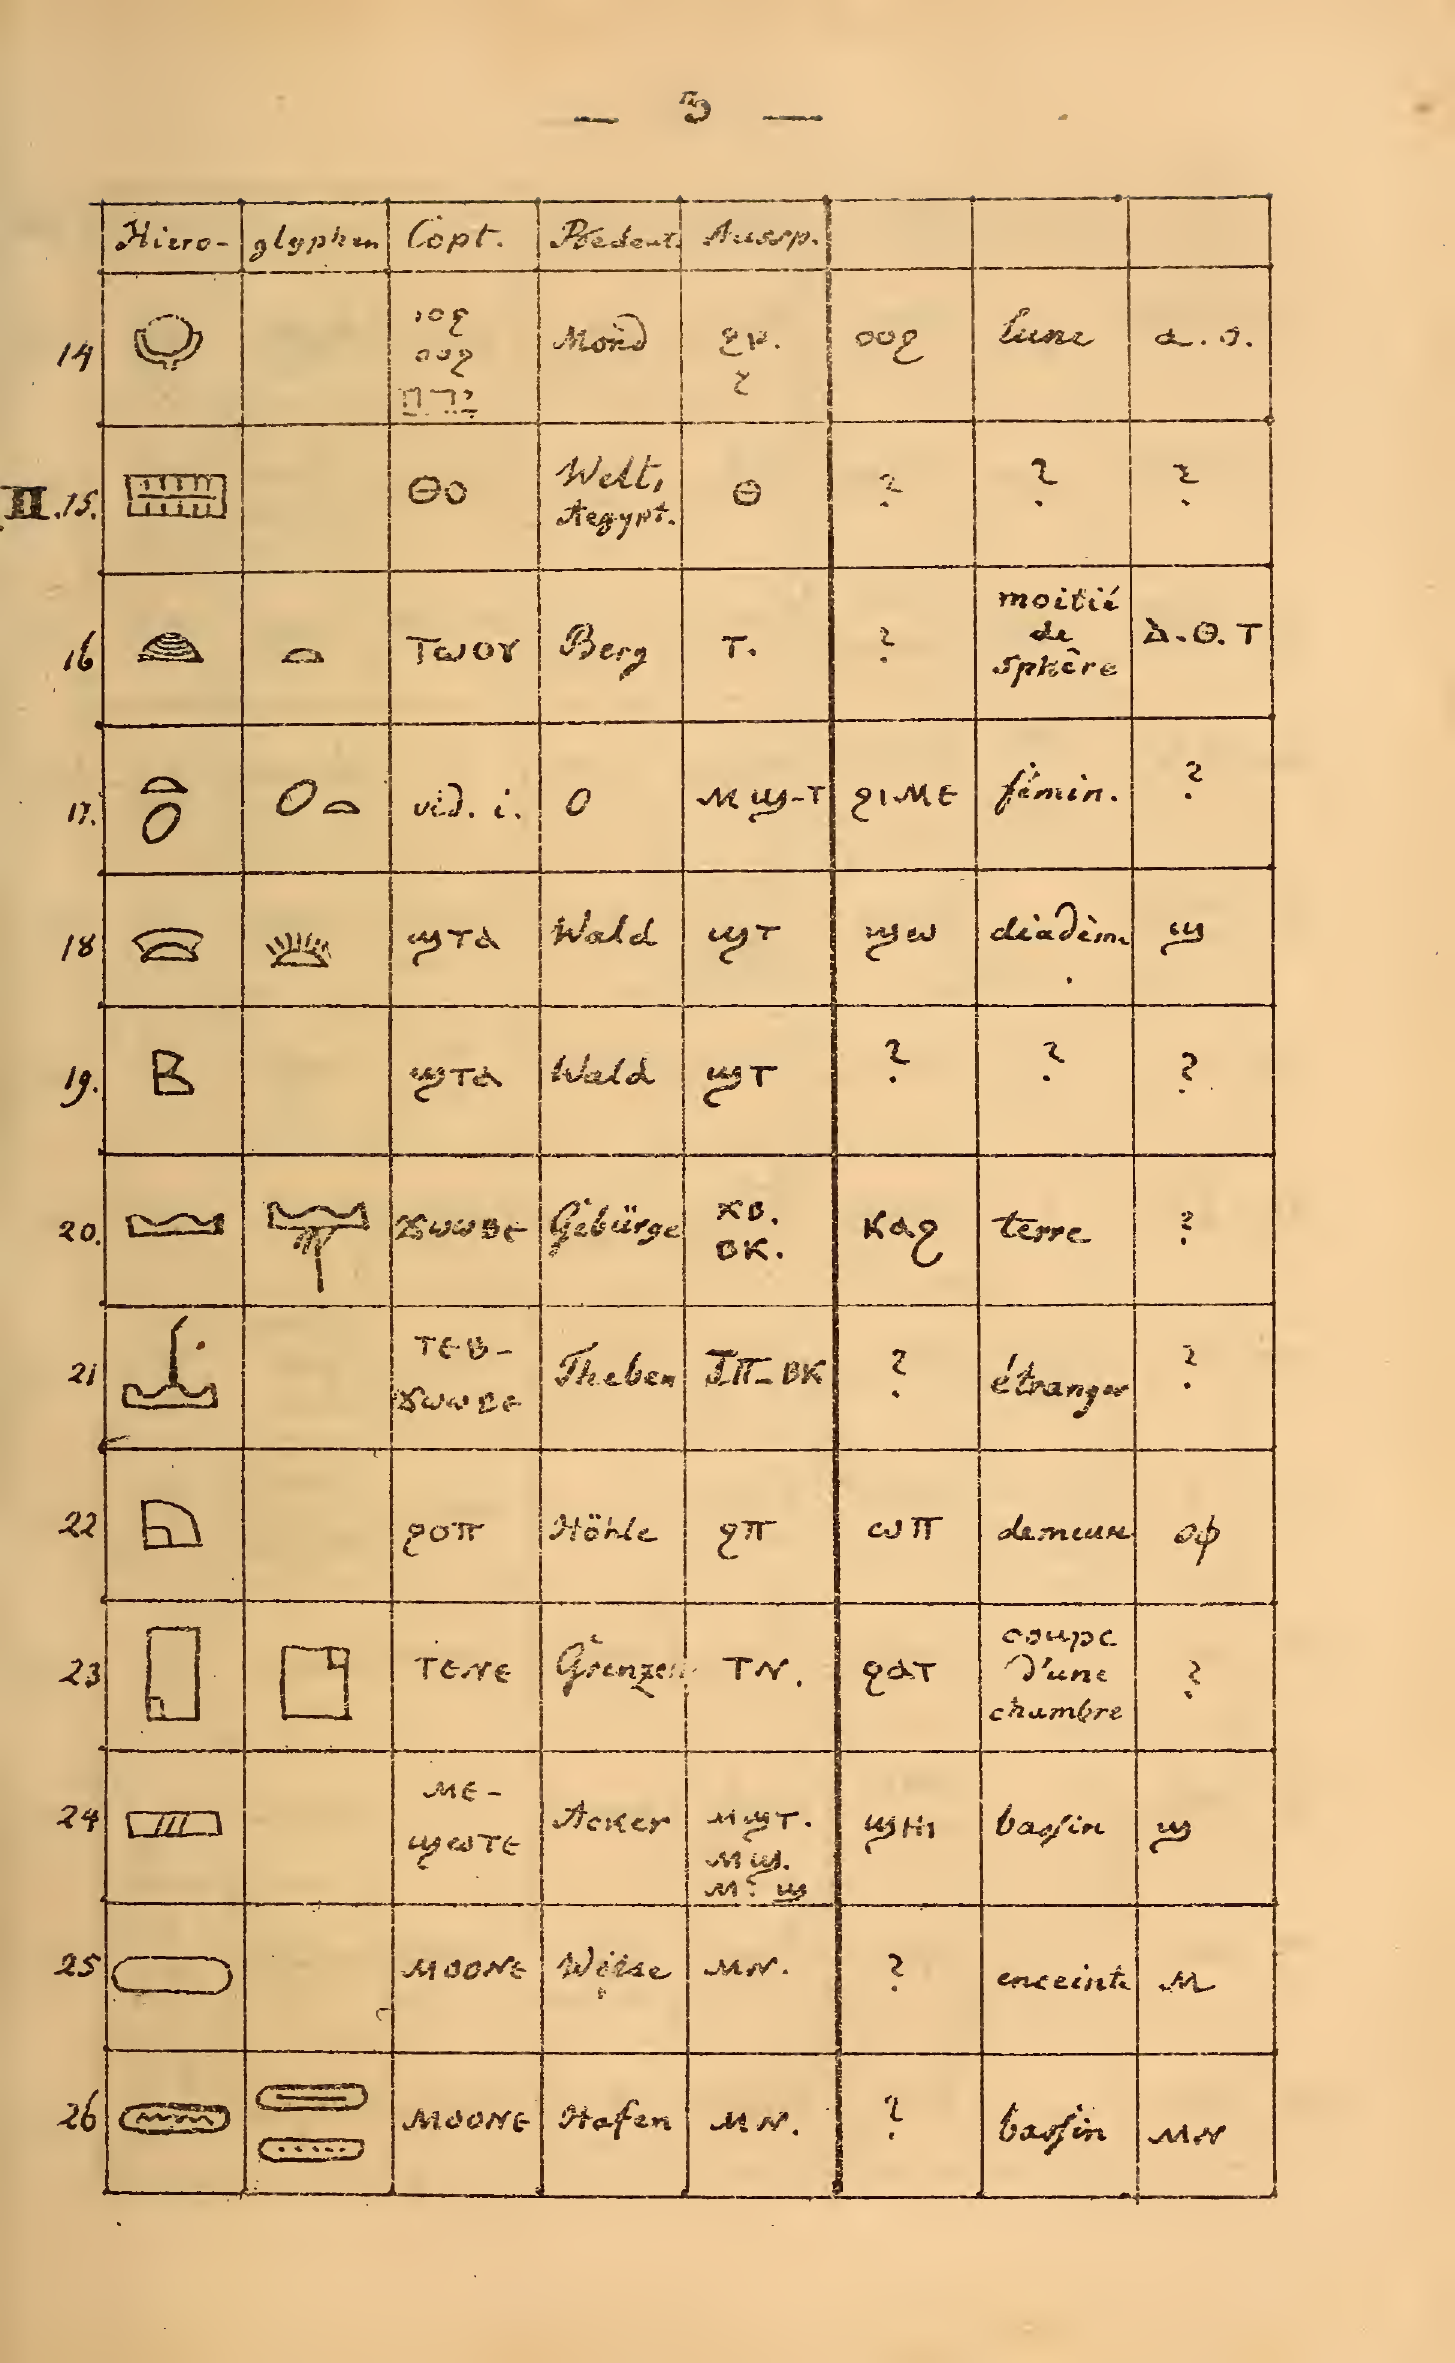 — 3 —
Hiero- glyphen Copt. Bedeut. Aussp.
14 ⲓⲟϩ ⲟⲟϩ Mond ϩⲕ. ϩ ⲟⲟϩ lune ⲁ. ⲟ.
II. 15. Ⲑⲟ Welt, Aegypt. Ⲑ ? ? ?
16 ⲦⲰⲞⲨ Berg Ⲧ. ? moitié de sphère Ⲇ. Ⲑ. Ⲧ
17. vid. i. O ⲙϣ-ⲧ ϩⲓⲙⲉ fémin. ?
18 ϣⲧⲁ Wald ϣⲧ ϣⲱ diadèm. ϣ
19. ϣⲧⲁ Wald ϣⲧ ? ? ?
20. ϫⲱⲱⲃⲉ Gebürge ⲕⲃ. ⲃⲕ. ⲕⲁϩ terre ?
21 ⲧⲉⲃ- ϫⲱⲱⲃⲉ Theben ⲧⲡ-ⲃⲕ ? étranger ?
22 ϩⲟⲡ Höhle ϩⲡ ⲱⲡ demeure ⲟⲫ
23 ⲧⲉⲛⲉ Grenzen ⲧⲛ. ϩⲁⲧ coupe d'une chambre ?
24 ⲙⲉ- ϣⲱⲧⲉ Acker ⲙϣⲧ. ⲙϣ. ⲙ. ϣ ϣⲏⲓ bassin ϣ
25 ⲙⲟⲟⲛⲉ ⲙⲛ. ? enceinte ⲙ
26 ⲙⲟⲟⲛⲉ Hafen ⲙⲛ. ? bassin ⲙⲛ